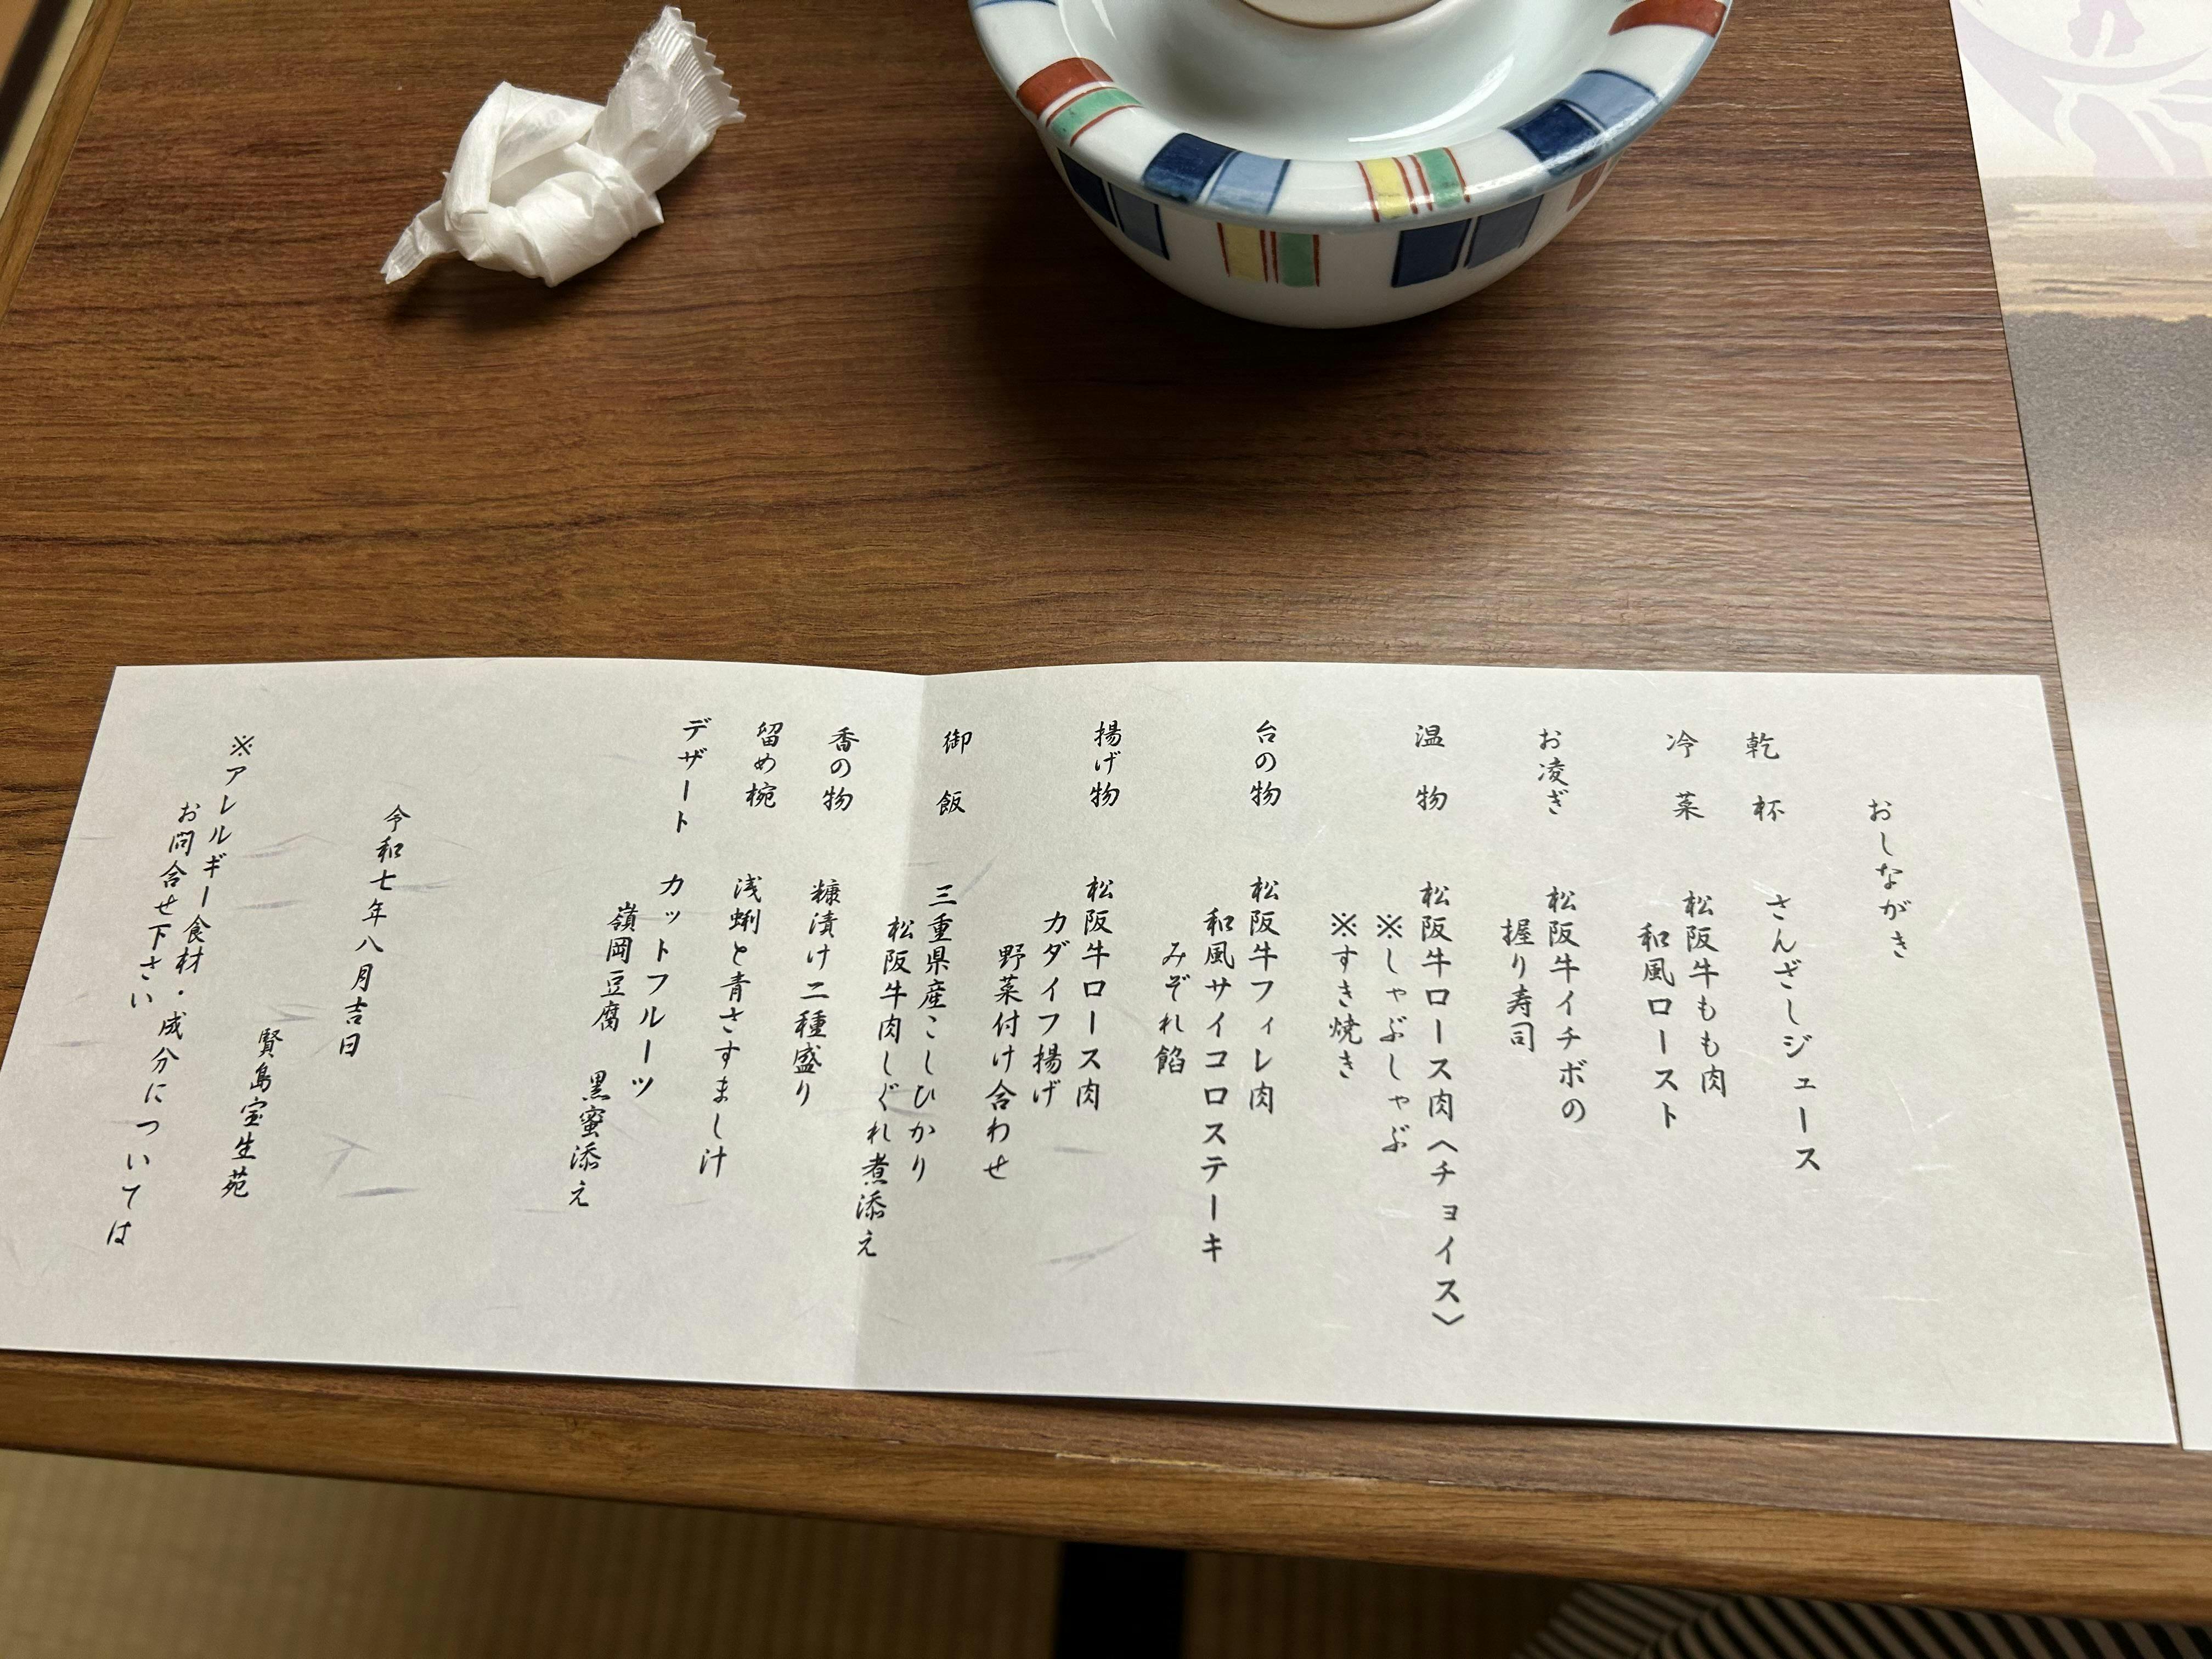 おしながき
乾杯 さんざしジュース
冷菜 松阪牛もも肉
和風ロースト
お凌ぎ 松阪牛イチボの
握り寿司
温物 松阪牛ロース肉〈チョイス〉
※しゃぶしゃぶ
※すき焼き
台の物 松阪牛フィレ肉
和風サイコロステーキ
みぞれ餡
揚げ物 松阪牛ロース肉
カダイフ揚げ
野菜付け合わせ
御飯 三重県産こしひかり
松阪牛肉しぐれ煮添え
香の物 糠漬け二種盛り
留め椀 浅蜊と青さすまし汁
デザート カットフルーツ
嶺岡豆腐 黒蜜添え
令和七年八月吉日
賢島宝生苑
※アレルギー食材・成分については
お問合せ下さい